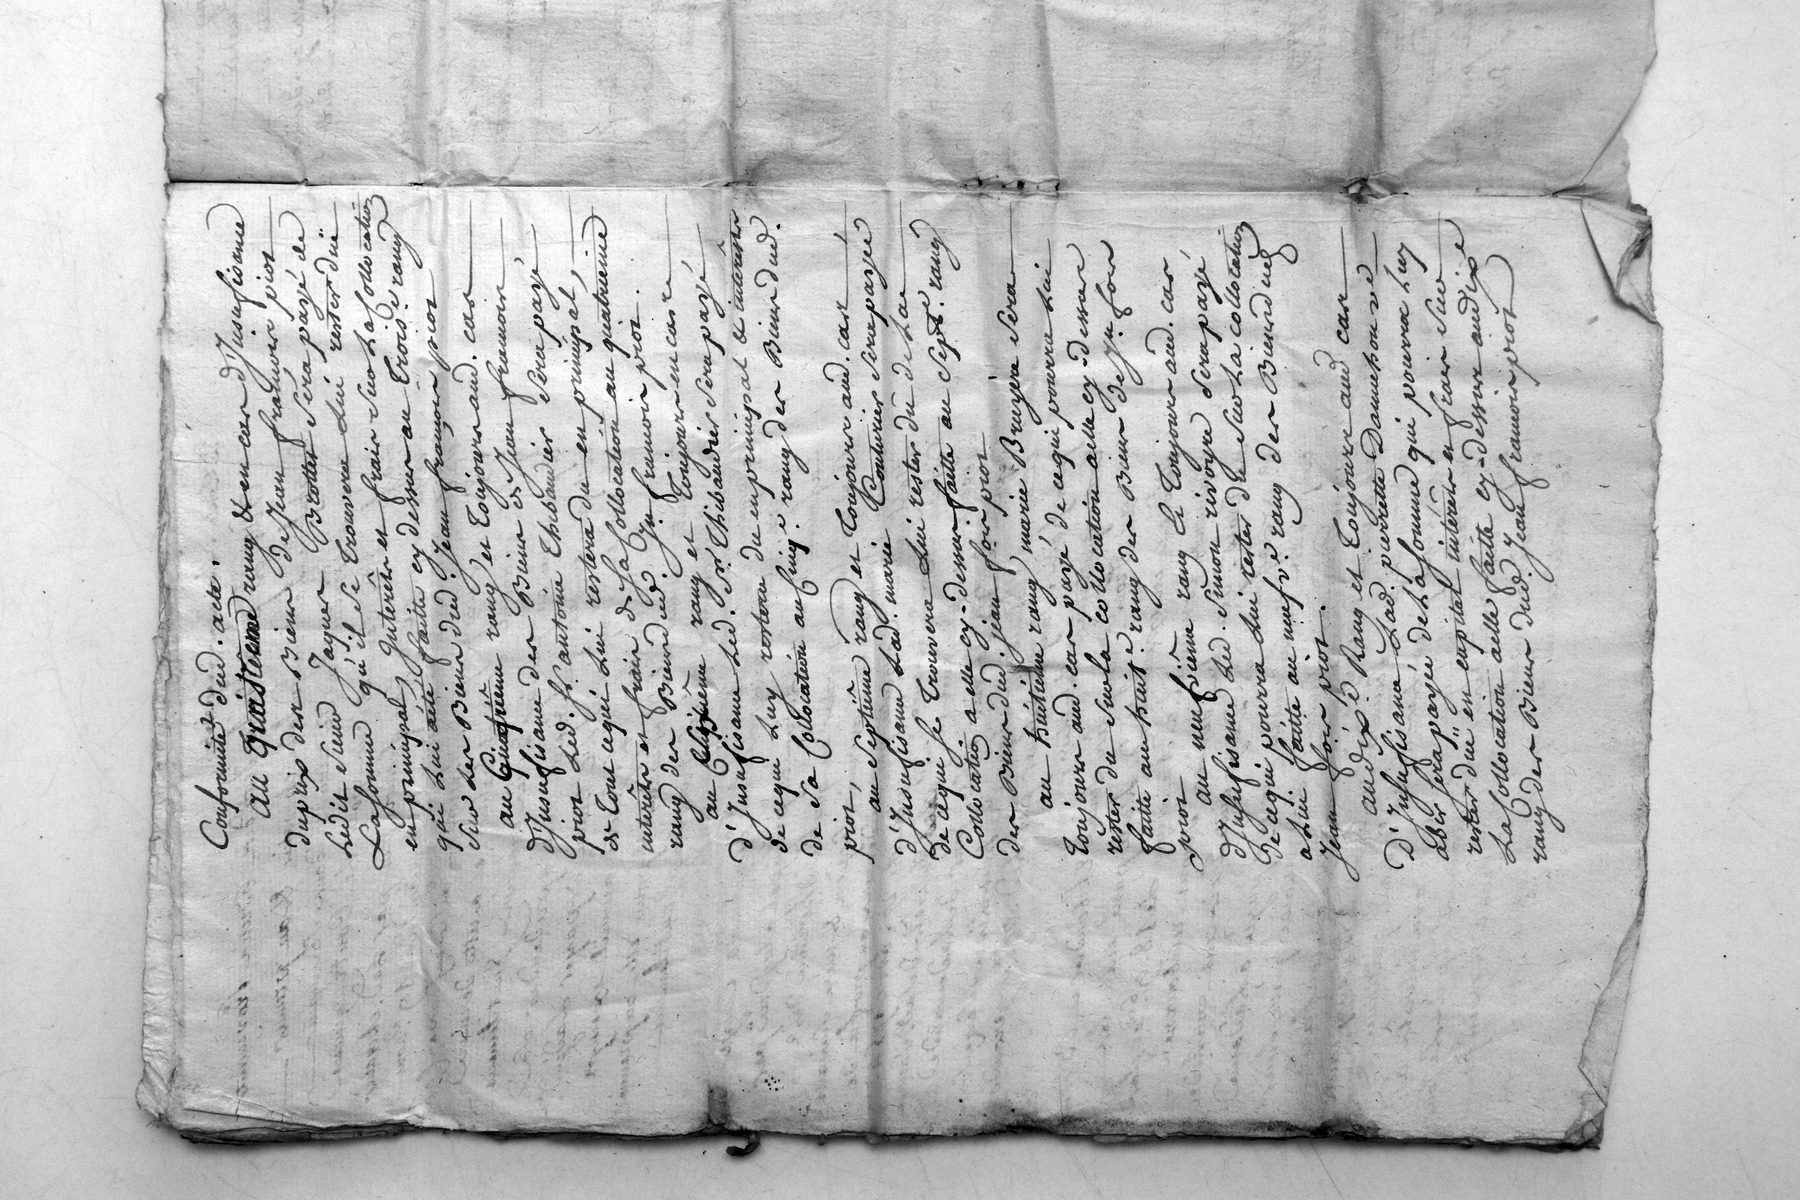 Conformité dud. acte.
au quatrieme rang & en cas d'Insufisance
du prix des Biens de Jean françois piot
Ledit Sieur Jaques Brottet sera payé de
La somme qu'il se trouvera lui rester düe
en principal, Interêts et frais sur La Collocation
qui Lui a été faitte cy dessus au troise. rang
sur Les Biens dud. Jean françois piot
au Cinquieme rang et toujours aud. cas
d'Insufisance des Biens de Jean françois
piot Led. Sr. antoine Thibaudier sera payé
de tout ce qui Lui restera du en principal,
interêts et frais de La Collocation au quatrieme
rang des Biens dud. Jn. françois piot.
au Sixieme rang et toujours en cas
d'Insufisance Led. Sr. Thibaudier sera payé
de ce qui Luy restera du en principal & interêts
de Sa Collocation au cinqe. rang des Biens dud.
piot,
au Septieme rang et toujours aud. cas
d'Insufisance Lad. marie Couturier sera payée
de ce qui se trouvera Lui rester dû de La
Collocation a elle cy-dessus faitte au Sixe. rang
des Biens dud. jean fçois piot
au huitieme rang marie Bruyere sera
toujours aud. cas payé de ce qui pourra lui
rester du sur la collocation a elle cy-dessus
faitte au huite. rang des Biens de Jn. fçois
piot
au neufvieme rang & toujours aud. cas
d'Insufisance Led. Simon rivoyre sera payé
de ce qui pourra Lui rester du sur La collocation
a Lui faitte au neufve. rang des Biens dud.
Jean fçois piot.
au dixe. Rang et toujours aud. cas
D'Insufisance Lad. pierrette
sera payée de La somme qui pourra Luy
rester düe en capital interêts et frais sur
La Collocation a elle faitte cy-dessus au dixe.
rang des Biens dud. Jean françois piot